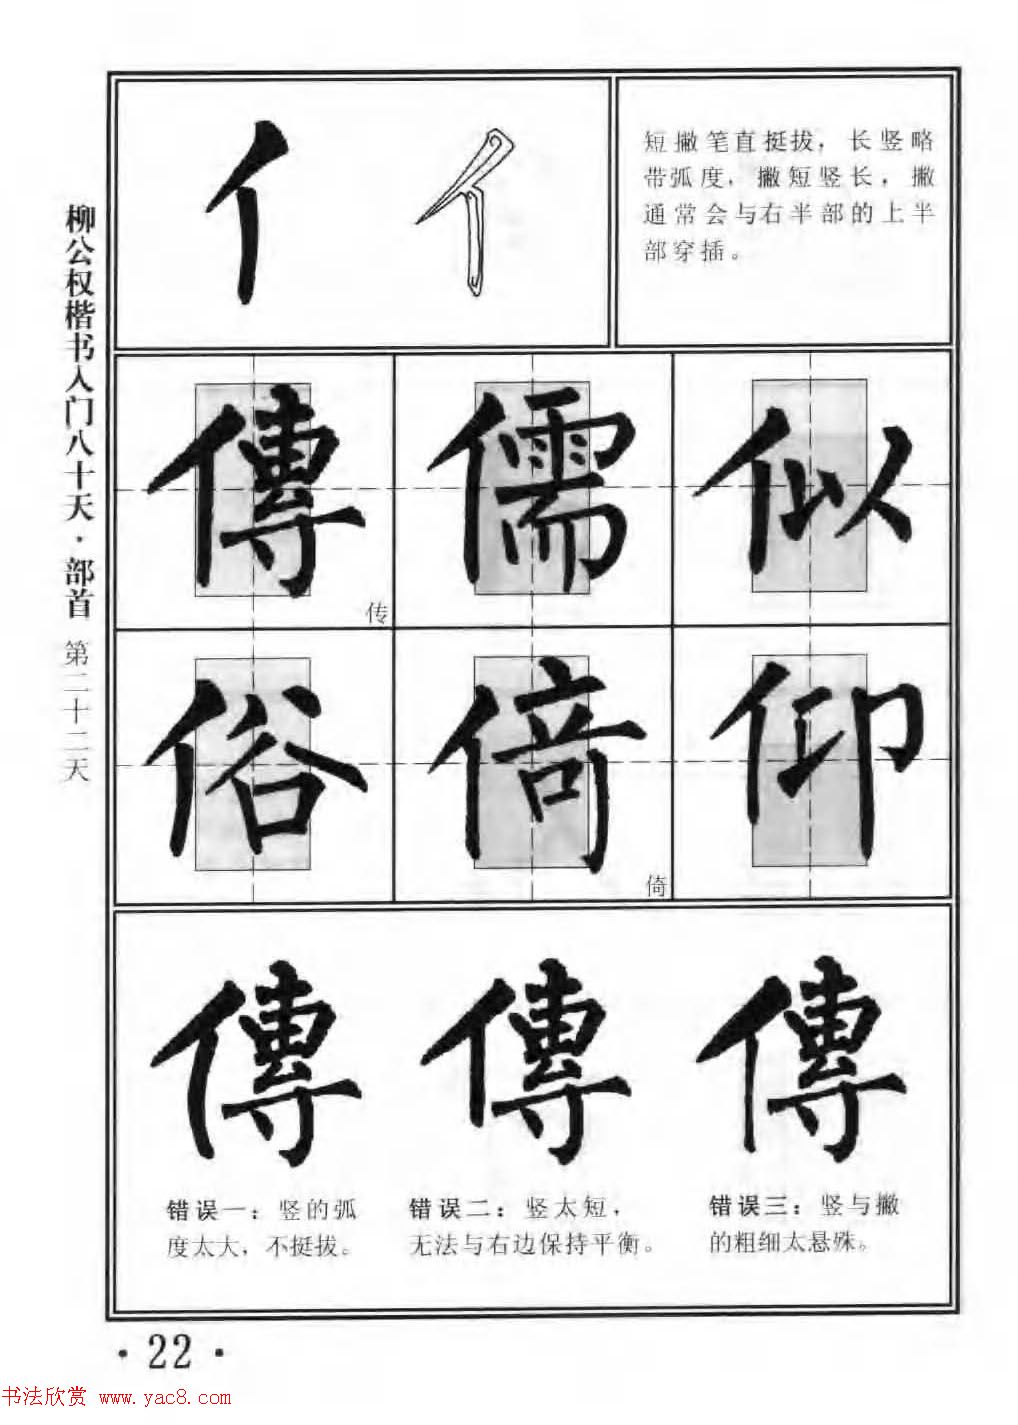 柳公权楷书入门八十天·部首 第二十二天
亻
短撇笔直挺拔，长竖略
带弧度，撇短竖长，撇
通常会与右半部的上半
部穿插。
傳 儒 似
传
俗 倚 仰
倚
傳 傳 傳
错误一：竖的弧
度太大，不挺拔。
错误二：竖太短，
无法与右边保持平衡。
错误三：竖与撇
的粗细太悬殊。
·22·
书法欣赏 www.yac8.com